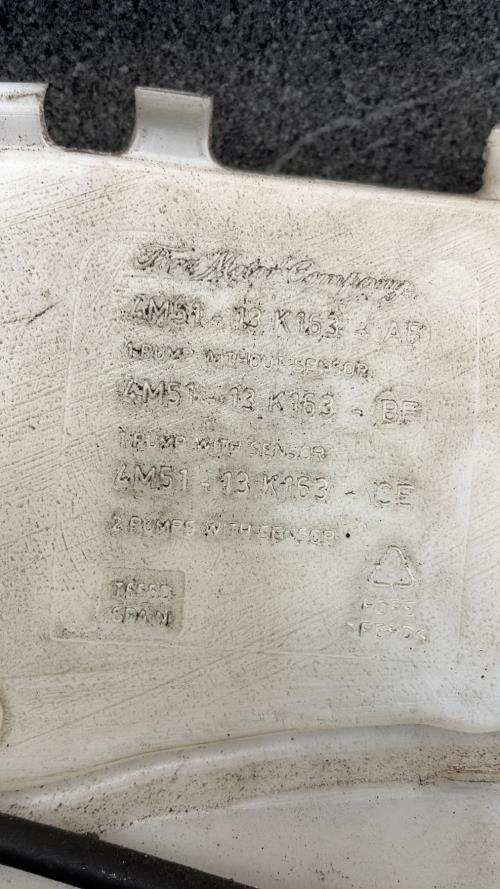 Ford Motor Company
4M51 - 13 K163 - AF
1 PUMP WITHOUT SENSOR
4M51 - 13 K163 - BF
1 PUMP WITH SENSOR
4M51 - 13 K163 - CE
2 PUMPS WITH SENSOR
SPAIN
HDPE